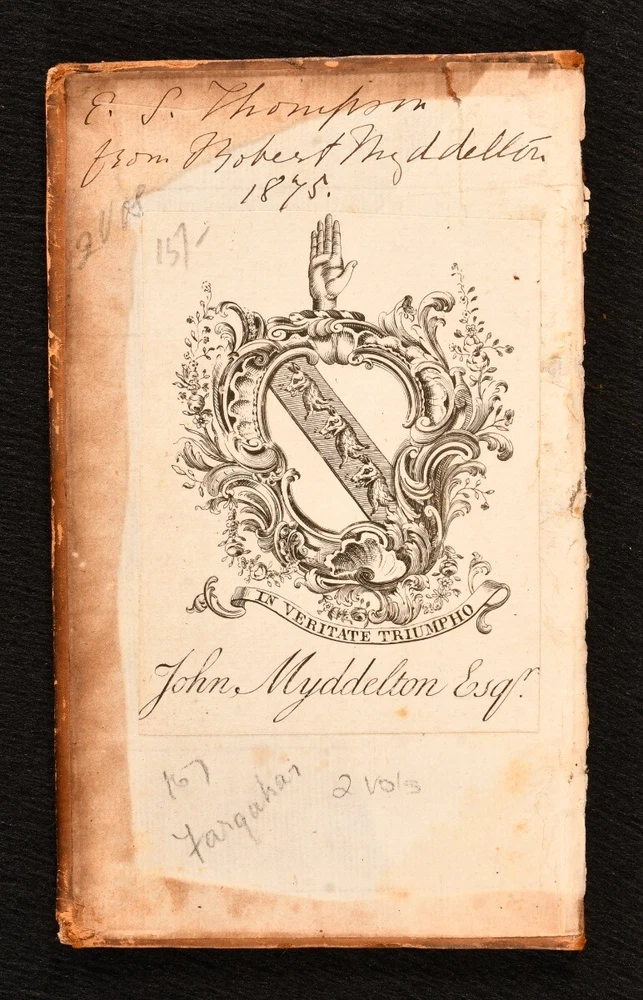 E. S. Thompson
from Robert Myddelton
1875.
2 Vols
15/-
IN VERITATE TRIUMPHO
John Myddelton Esqr.
167
Farquhar
2 Vols